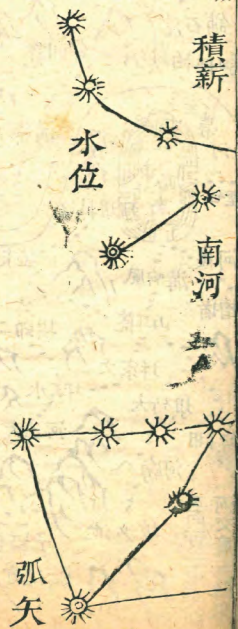 積薪
水位
南河
弧矢